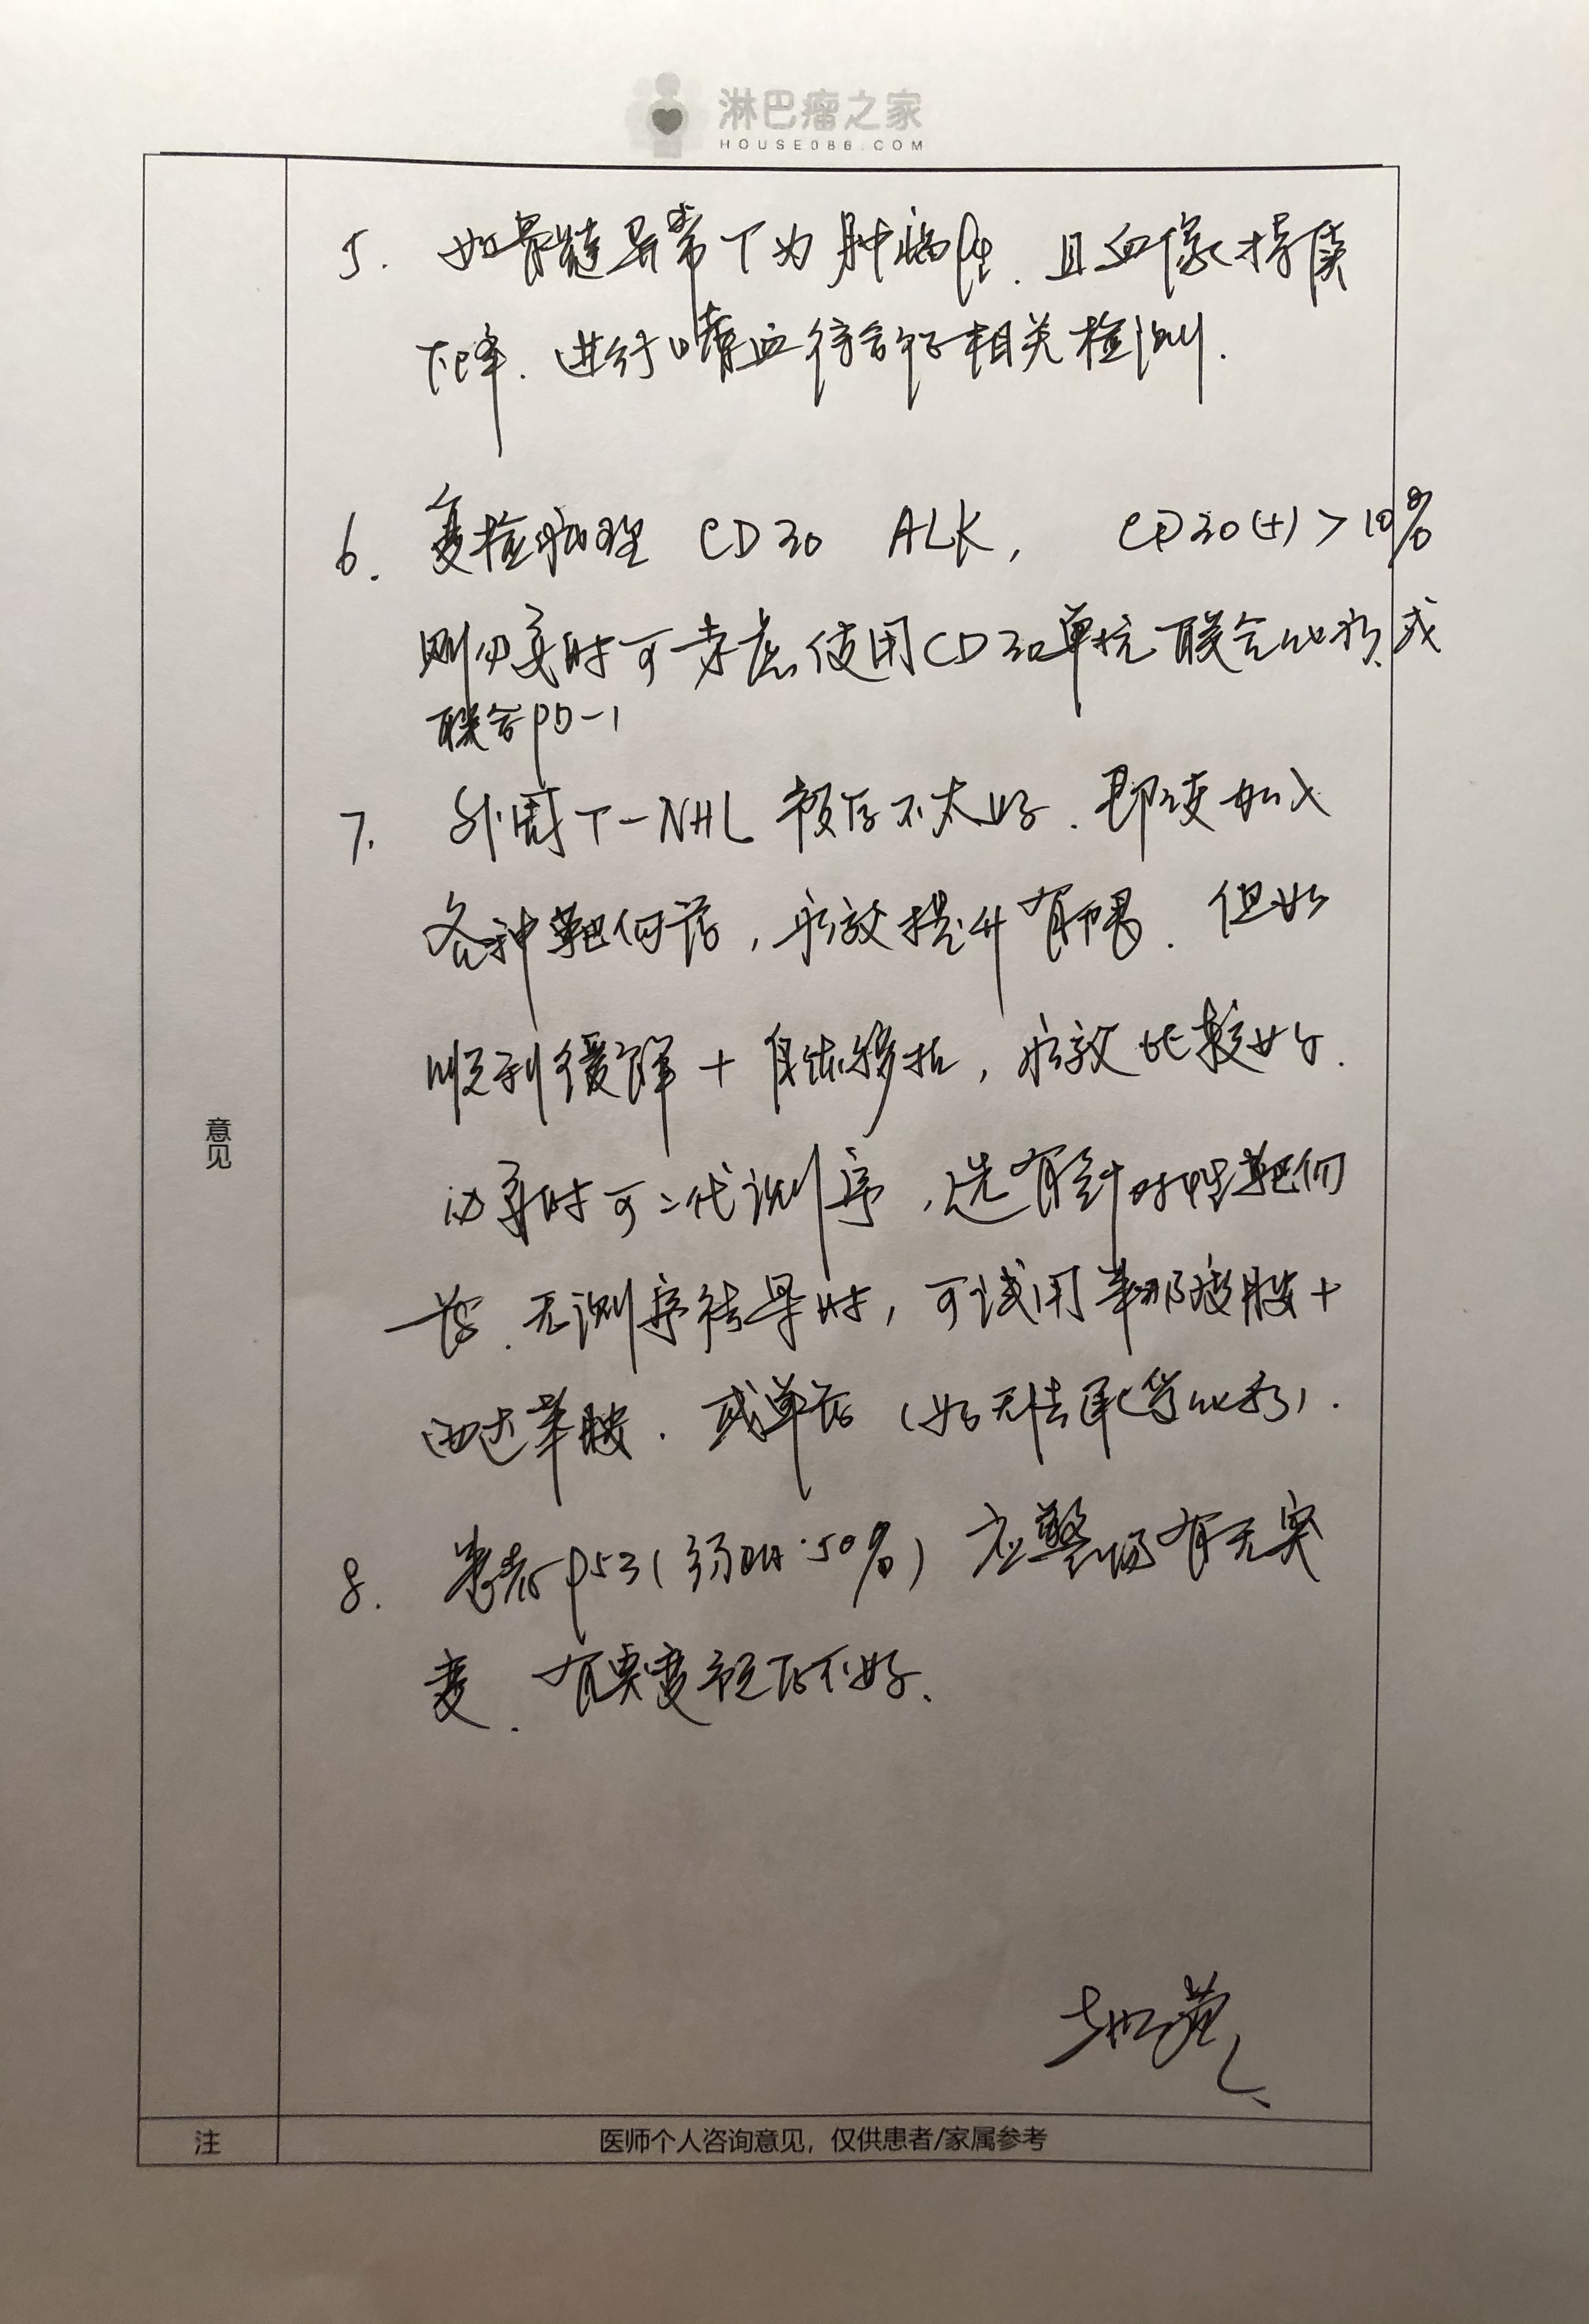 淋巴瘤之家
HOUSE086.COM
5. 如骨髓异常T为肿瘤性.且血像持续
下降.进行嗜血综合征相关检测.
6. 复检病理 CD30 ALK, CD30(+)>10%
则必要时可考虑使用CD30单抗联合化疗,或
联合PD-1
7. 外周T-NHL 预后不太好.即使加入
各种靶向药,疗效提升有限.但如
顺利缓解+自体移植,疗效比较好.
必要时可二代测序,选有针对性靶向
药.无测序结果时,可试用来那度胺+
西达苯胺.或单药(如无法耐受化疗).
8. 患者p53(弱阳:50%)应警惕有无突
变.有突变预后不好.
意见
注
医师个人咨询意见，仅供患者/家属参考